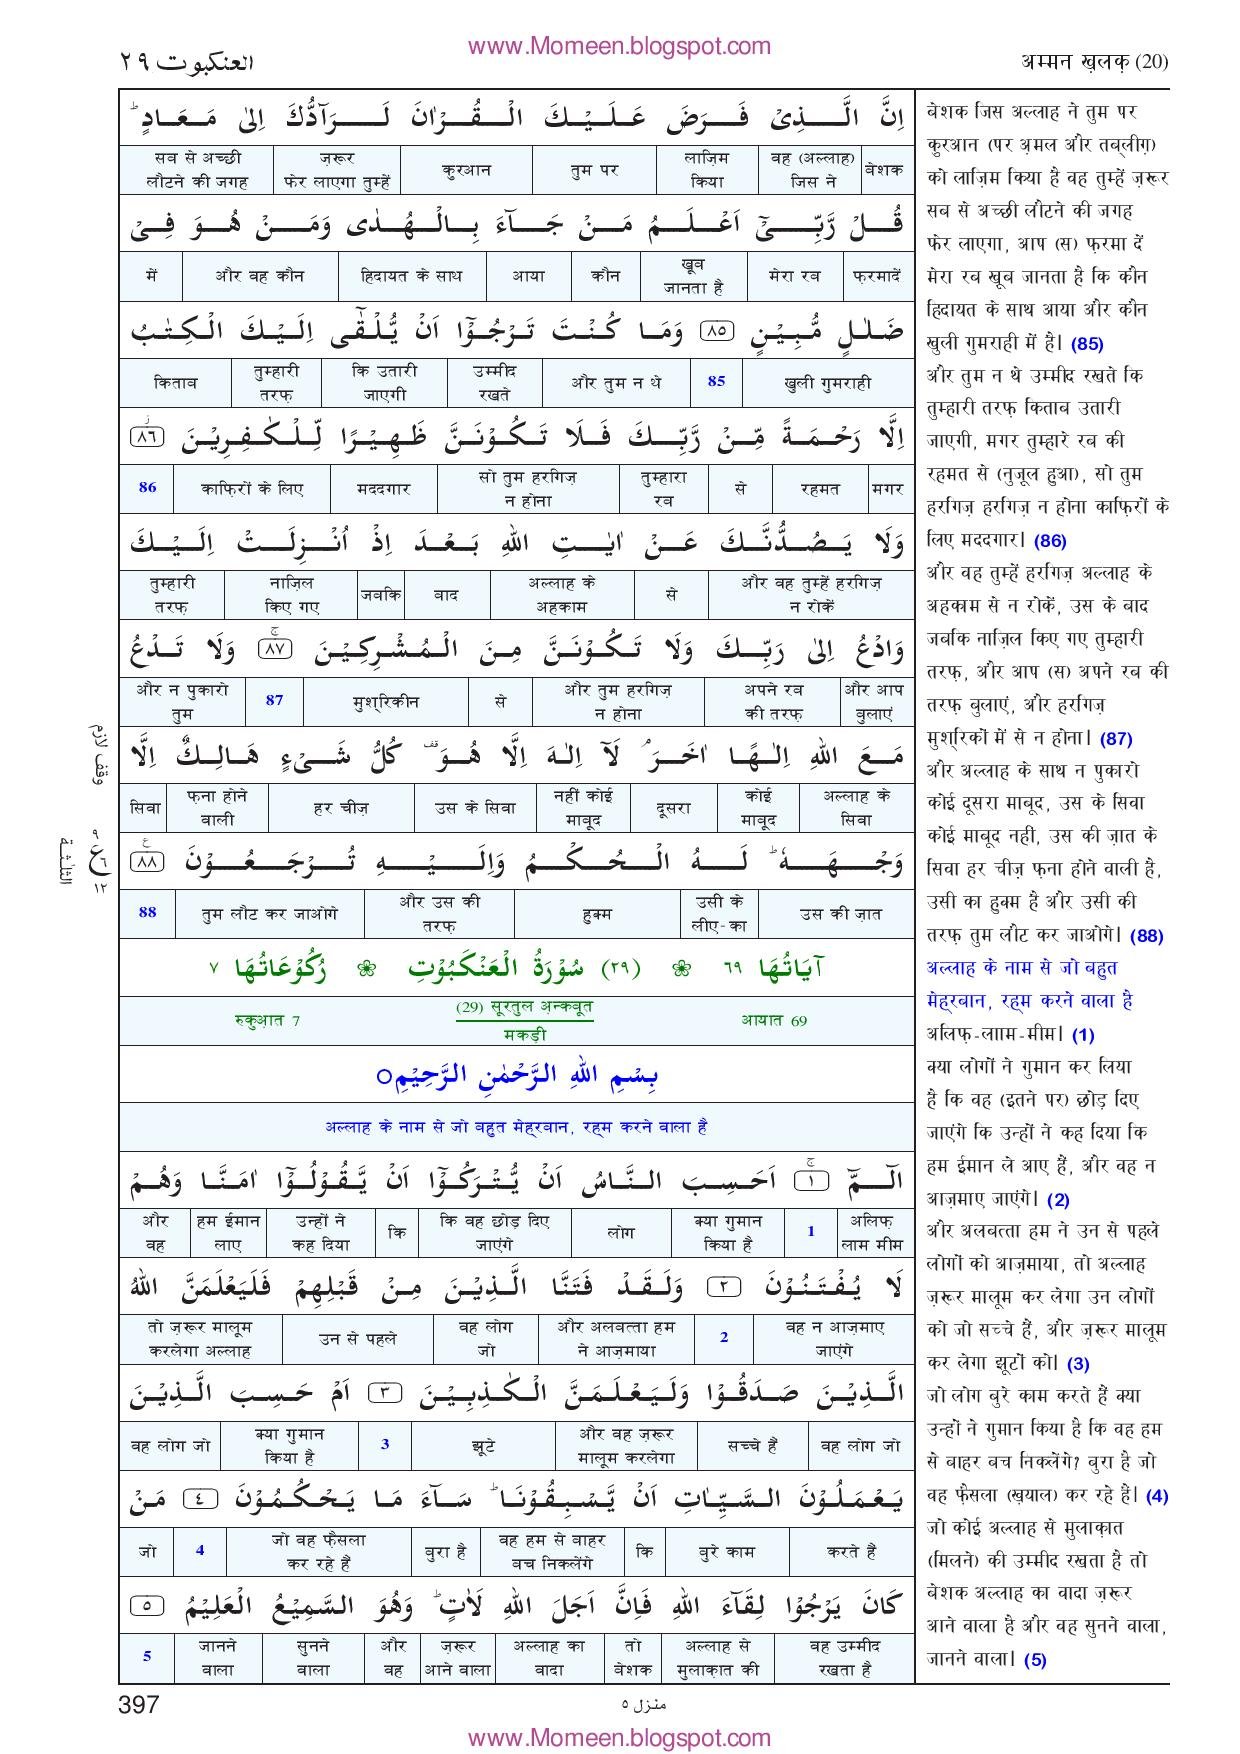 www.Momeen.blogspot.com
العنكبوت ٢٩
अम्मन ख़लक़ (20)
اِنَّ الَّذِىْ فَرَضَ عَلَيْكَ الْقُرْاٰنَ لَرَآدُّكَ اِلٰى مَعَادٍ ؕ
बेशक | वह (अल्लाह) जिस ने | लाज़िम किया | तुम पर | कुरआन | ज़रूर फेर लाएगा तुम्हें | सब से अच्छी लौटने की जगह
قُلْ رَّبِّىْۤ اَعْلَمُ مَنْ جَآءَ بِالْهُدٰى وَمَنْ هُوَ فِىْ
फ़रमादें | मेरा रब | खूब जानता है | कौन | आया | हिदायत के साथ | और वह कौन | में
ضَلٰلٍ مُّبِيْنٍ ٨٥ وَمَا كُنْتَ تَرْجُوْۤا اَنْ يُّلْقٰۤى اِلَيْكَ الْكِتٰبُ
खुली गुमराही | 85 | और तुम न थे | उम्मीद रखते | कि उतारी जाएगी | तुम्हारी तरफ़ | किताब
اِلَّا رَحْمَةً مِّنْ رَّبِّكَ فَلَا تَكُوْنَنَّ ظَهِيْرًا لِّلْكٰفِرِيْنَ ٨٦
मगर | रहमत | से | तुम्हारा रब | सो तुम हरगिज़ न होना | मददगार | काफ़िरों के लिए | 86
وَلَا يَصُدُّنَّكَ عَنْ اٰيٰتِ اللهِ بَعْدَ اِذْ اُنْزِلَتْ اِلَيْكَ
और वह तुम्हें हरगिज़ न रोकें | से | अल्लाह के अहकाम | बाद | जबकि | नाज़िल किए गए | तुम्हारी तरफ़
وَادْعُ اِلٰى رَبِّكَ وَلَا تَكُوْنَنَّ مِنَ الْمُشْرِكِيْنَ ٨٧ وَلَا تَدْعُ
और आप बुलाएं | अपने रब की तरफ़ | और तुम हरगिज़ न होना | से | मुश्रिकीन | 87 | और न पुकारो तुम
مَعَ اللهِ اِلٰهًا اٰخَرَ ۘ لَاۤ اِلٰهَ اِلَّا هُوَ ۫ كُلُّ شَىْءٍ هَالِكٌ اِلَّا
अल्लाह के सिवा | कोई माबूद | दूसरा | नहीं कोई माबूद | उस के सिवा | हर चीज़ | फ़ना होने वाली | सिवा
وَجْهَهٗ ؕ لَهُ الْحُكْمُ وَاِلَيْهِ تُرْجَعُوْنَ ٨٨
उस की ज़ात | उसी के लीए-का | हुक्म | और उस की तरफ़ | तुम लौट कर जाओगे | 88
وقف لازم
ع ١٢
الثلثة
آيَاتُهَا ٦٩ ❀ (٢٩) سُوْرَةُ الْعَنْكَبُوْتِ ❀ رُكُوْعَاتُهَا ٧
आयात 69 | (29) सूरतुल अ़न्कबूत मकड़ी | रुकुआ़त 7
بِسْمِ اللهِ الرَّحْمٰنِ الرَّحِيْمِ
अल्लाह के नाम से जो बहुत मेह्रबान, रह्म करने वाला है
الٓمّٓ ١ اَحَسِبَ النَّاسُ اَنْ يُّتْرَكُوْۤا اَنْ يَّقُوْلُوْۤا اٰمَنَّا وَهُمْ
अलिफ़ लाम मीम | 1 | क्या गुमान किया है | लोग | कि वह छोड़ दिए जाएंगे | कि | उन्हों ने कह दिया | हम ईमान लाए | और वह
لَا يُفْتَنُوْنَ ٢ وَلَقَدْ فَتَنَّا الَّذِيْنَ مِنْ قَبْلِهِمْ فَلَيَعْلَمَنَّ اللهُ
वह न आज़माए जाएंगे | 2 | और अलबत्ता हम ने आज़माया | वह लोग जो | उन से पहले | तो ज़रूर मालूम करलेगा अल्लाह
الَّذِيْنَ صَدَقُوْا وَلَيَعْلَمَنَّ الْكٰذِبِيْنَ ٣ اَمْ حَسِبَ الَّذِيْنَ
वह लोग जो | सच्चे हैं | और वह ज़रूर मालूम करलेगा | झूटे | 3 | क्या गुमान किया है | वह लोग जो
يَعْمَلُوْنَ السَّيِّاٰتِ اَنْ يَّسْبِقُوْنَا ؕ سَآءَ مَا يَحْكُمُوْنَ ٤ مَنْ
करते हैं | बुरे काम | कि | वह हम से बाहर बच निकलेंगे | बुरा है | जो वह फ़ैसला कर रहे हैं | 4 | जो
كَانَ يَرْجُوْا لِقَآءَ اللهِ فَاِنَّ اَجَلَ اللهِ لَاٰتٍ ؕ وَهُوَ السَّمِيْعُ الْعَلِيْمُ ٥
वह उम्मीद रखता है | अल्लाह से मुलाक़ात की | तो बेशक | अल्लाह का वादा | ज़रूर आने वाला | और वह | सुनने वाला | जानने वाला | 5
बेशक जिस अल्लाह ने तुम पर
कुरआन (पर अ़मल और तब्लीग़)
को लाज़िम किया है वह तुम्हें ज़रूर
सब से अच्छी लौटने की जगह
फेर लाएगा, आप (स) फ़रमा दें
मेरा रब खूब जानता है कि कौन
हिदायत के साथ आया और कौन
खुली गुमराही में है। (85)
और तुम न थे उम्मीद रखते कि
तुम्हारी तरफ़ किताब उतारी
जाएगी, मगर तुम्हारे रब की
रहमत से (नुजूल हुआ), सो तुम
हरगिज़ हरगिज़ न होना काफ़िरों के
लिए मददगार। (86)
और वह तुम्हें हरगिज़ अल्लाह के
अहकाम से न रोकें, उस के बाद
जबकि नाज़िल किए गए तुम्हारी
तरफ़, और आप (स) अपने रब की
तरफ़ बुलाएं, और हरगिज़
मुश्रिकों में से न होना। (87)
और अल्लाह के साथ न पुकारो
कोई दूसरा माबूद, उस के सिवा
कोई माबूद नही, उस की ज़ात के
सिवा हर चीज़ फ़ना होने वाली है,
उसी का हुक्म है और उसी की
तरफ़ तुम लौट कर जाओगे। (88)
अल्लाह के नाम से जो बहुत
मेह्रबान, रह्म करने वाला है
अलिफ़-लााम-मीम। (1)
क्या लोगों ने गुमान कर लिया
है कि वह (इतने पर) छोड़ दिए
जाएंगे कि उन्हों ने कह दिया कि
हम ईमान ले आए हैं, और वह न
आज़माए जाएंगे। (2)
और अलबत्ता हम ने उन से पहले
लोगों को आज़माया, तो अल्लाह
ज़रूर मालूम कर लेगा उन लोगों
को जो सच्चे हैं, और ज़रूर मालूम
कर लेगा झूटों को। (3)
जो लोग बुरे काम करते हैं क्या
उन्हों ने गुमान किया है कि वह हम
से बाहर बच निकलेंगे? बुरा है जो
वह फ़ैसला (ख़याल) कर रहे हैं। (4)
जो कोई अल्लाह से मुलाक़ात
(मिलने) की उम्मीद रखता है तो
बेशक अल्लाह का वादा ज़रूर
आने वाला है और वह सुनने वाला,
जानने वाला। (5)
397
منزل ٥
www.Momeen.blogspot.com